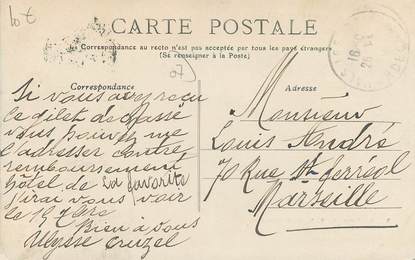 10 €
CARTE POSTALE
La Correspondance au recto n'est pas acceptée par tous les pays étrangers
(Se renseigner à la Poste)
Correspondance
Si vous avez reçu
le gilet de chasse
vous pouvez me
l'adresser contre
remboursement
hôtel de La favorite
J'irai vous voir
le 19
Bien à vous
Ulysse Cruzel
Adresse
Monsieur
Louis André
70 Rue St Ferréol
Marseille